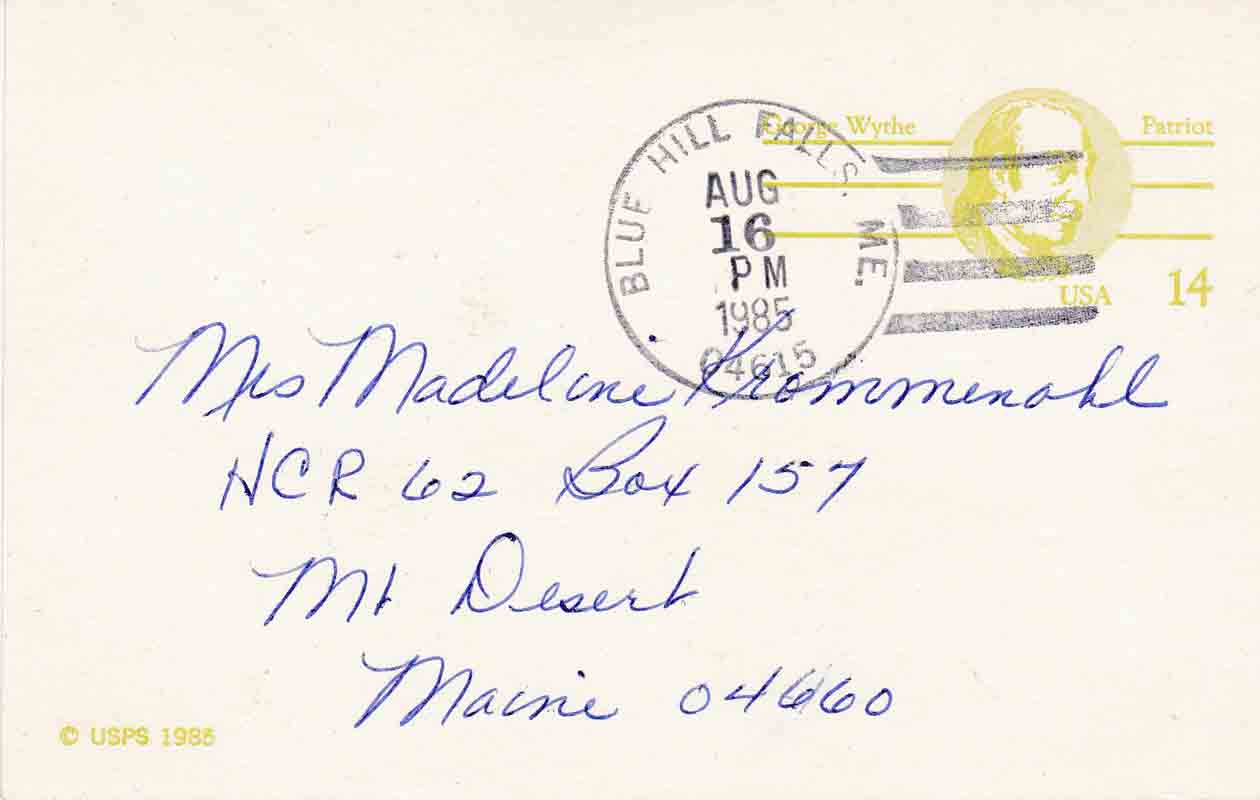 George Wythe Patriot
BLUE HILL FALLS, ME.
AUG
16
PM
1985
04615
USA 14
Mrs Madeline Krommenahl
HCR 62 Box 157
Mt Desert
Maine 04660
© USPS 1985